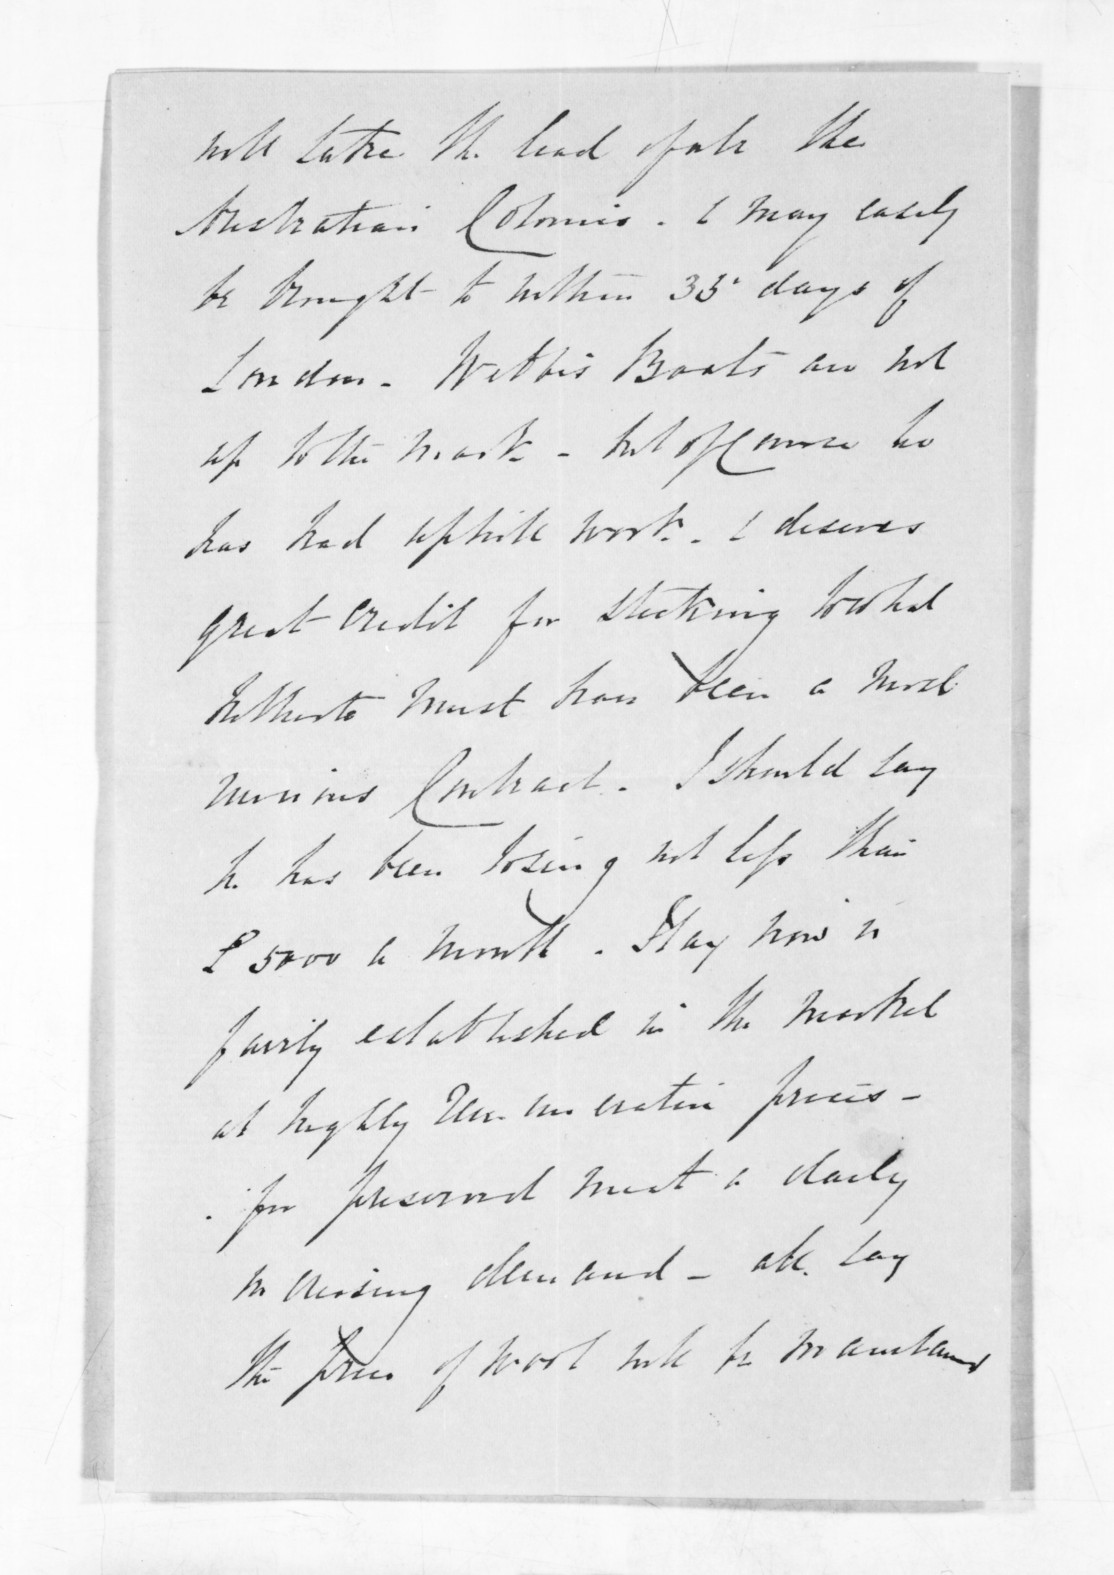 will take the lead of all the
Australian Colonies. & may easily
be brought to within 35 days of
London - Webbs Boats are not
up to the mark - but of Course he
has had uphill work. & deserves
great credit for sticking to what
hitherto must have been a most
ruinous Contract. I should say
he has been losing not less than
£5000 a month. Flax now is
fairly established in the market
at highly remunerative prices -
for preserved meat a daily
increasing demand - all say
the price of wool will be maintained